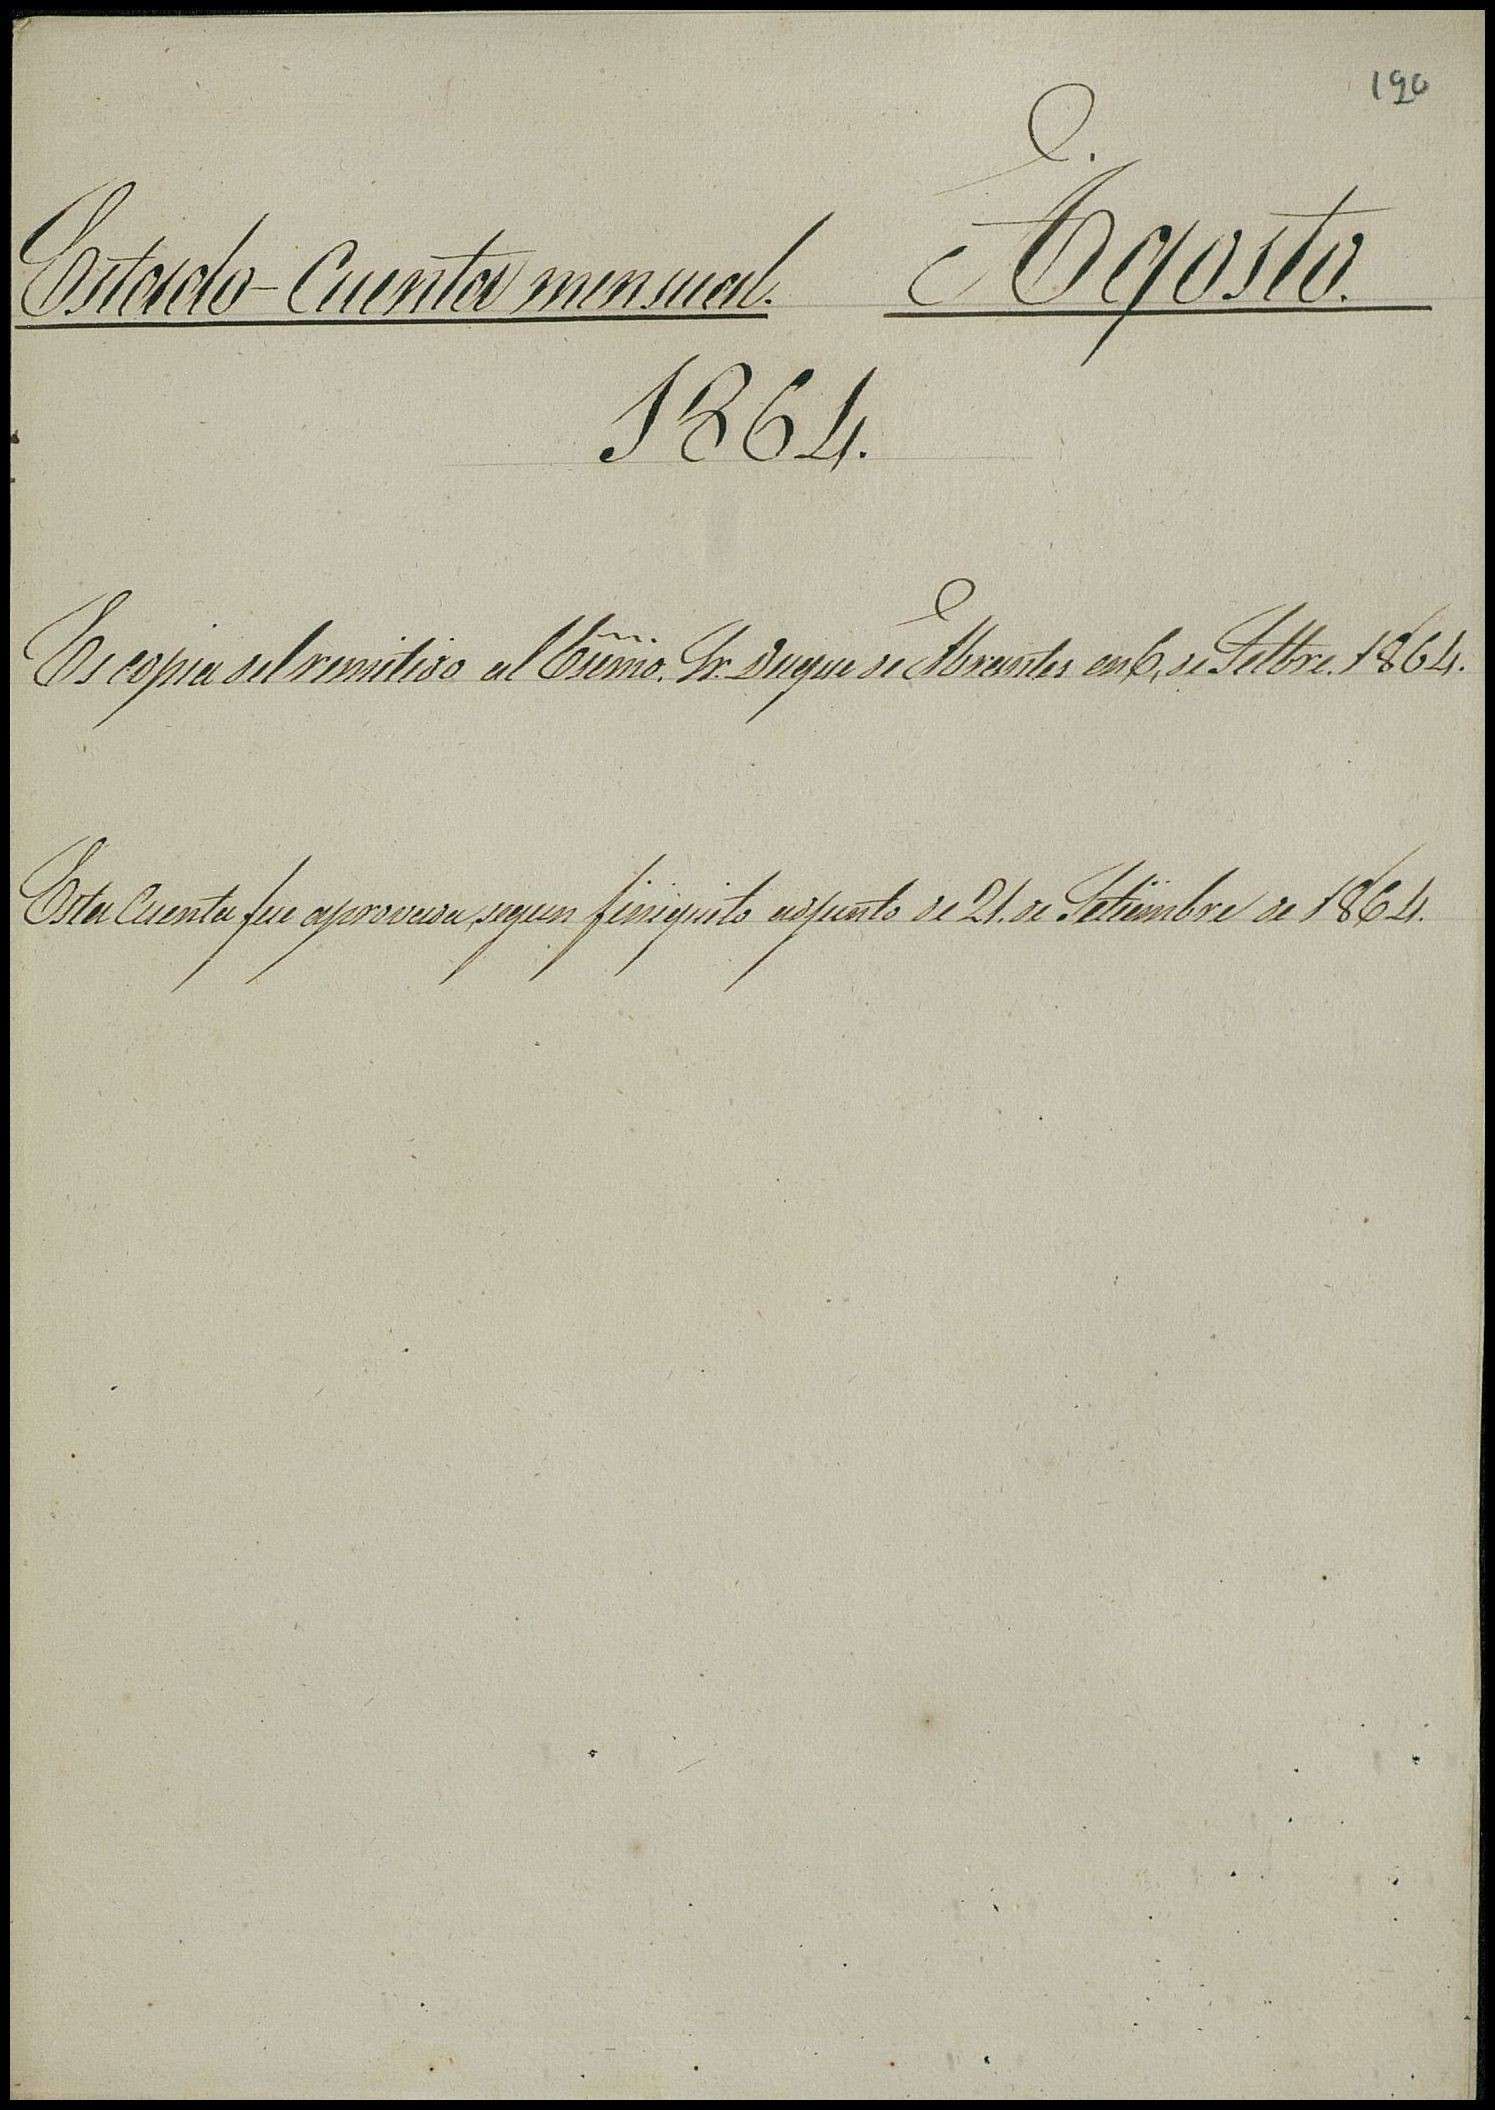 190
Estado-Cuenta mensual. Agosto.
1864.
Es copia del remitido al Escmo. Sr. Duque de Abrantes en 6, de Setbre. 1864.
Esta Cuenta fue aprovada, segun finiquito adjunto de 21. de Setiembre de 1864.